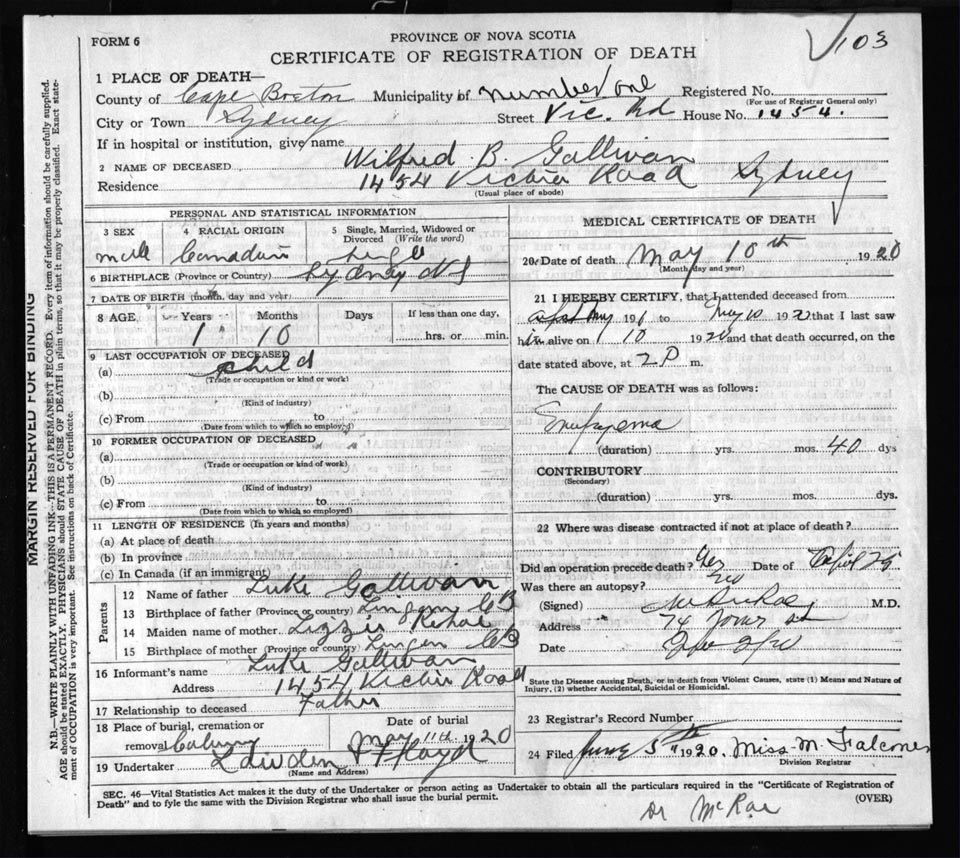 103
FORM 6
PROVINCE OF NOVA SCOTIA
CERTIFICATE OF REGISTRATION OF DEATH
1 PLACE OF DEATH—
County of Cape Breton Municipality of number one Registered No.
(For use of Registrar General only)
City or Town Sydney Street Vic. Rd House No. 1454.
If in hospital or institution, give name
2 NAME OF DECEASED Wilfred B. Gallivan
Residence 1454 Victria Road Sydney
(Usual place of abode)
PERSONAL AND STATISTICAL INFORMATION
3 SEX 4 RACIAL ORIGIN 5 Single, Married, Widowed or Divorced (Write the word)
male Canadian single
6 BIRTHPLACE (Province or Country) Sydney NS
7 DATE OF BIRTH (month, day and year)
8 AGE Years Months Days If less than one day,
1 10 hrs. or min.
9 LAST OCCUPATION OF DECEASED
(a) child
(Trade or occupation or kind or work)
(b)
(Kind of industry)
(c) From to
(Date from which to which so employed)
10 FORMER OCCUPATION OF DECEASED
(a)
(Trade or occupation or kind of work)
(b)
(Kind of industry)
(c) From to
(Date from which to which so employed)
11 LENGTH OF RESIDENCE (In years and months)
(a) At place of death
(b) In province
(c) In Canada (if an immigrant)
Parents
12 Name of father Luke Gallivan
13 Birthplace of father (Province or country) Lingan CB
14 Maiden name of mother Lizzie
15 Birthplace of mother (Province or country) Lingan CB
16 Informant's name Luke Gallivan
Address 1454 Victria Road
17 Relationship to deceased Father
18 Place of burial, cremation or removal Date of burial
May 11th 1920
19 Undertaker Lowden & Floyd
(Name and Address)
MEDICAL CERTIFICATE OF DEATH
20 Date of death May 10th 1920
(Month, day and year)
21 I HEREBY CERTIFY, that I attended deceased from
to May 10 1920 that I last saw
him alive on 10 1920 and that death occurred, on the
date stated above, at 2 P m.
The CAUSE OF DEATH was as follows:
Empyema
(duration) yrs. mos. 40 dys
CONTRIBUTORY
(Secondary)
(duration) yrs. mos. dys.
22 Where was disease contracted if not at place of death?
Did an operation precede death? Yes Date of April 29
Was there an autopsy? No
(Signed) M.D.
Address 74
Date
State the Disease causing Death, or in death from Violent Causes, state (1) Means and Nature of Injury, (2) whether Accidental, Suicidal or Homicidal.
23 Registrar's Record Number
24 Filed June 5th 1920. Miss M. Falconer
Division Registrar
SEC. 46—Vital Statistics Act makes it the duty of the Undertaker or person acting as Undertaker to obtain all the particulars required in the "Certificate of Registration of
Death" and to fyle the same with the Division Registrar who shall issue the burial permit. (OVER)
Dr McRae
MARGIN RESERVED FOR BINDING
N.B.—WRITE PLAINLY WITH UNFADING INK—THIS IS A PERMANENT RECORD. Every item of information should be carefully supplied.
AGE should be stated EXACTLY. PHYSICIANS should STATE CAUSE OF DEATH in plain terms, so that it may be properly classified. Exact statement of OCCUPATION is very important. See instructions on back of Certificate.